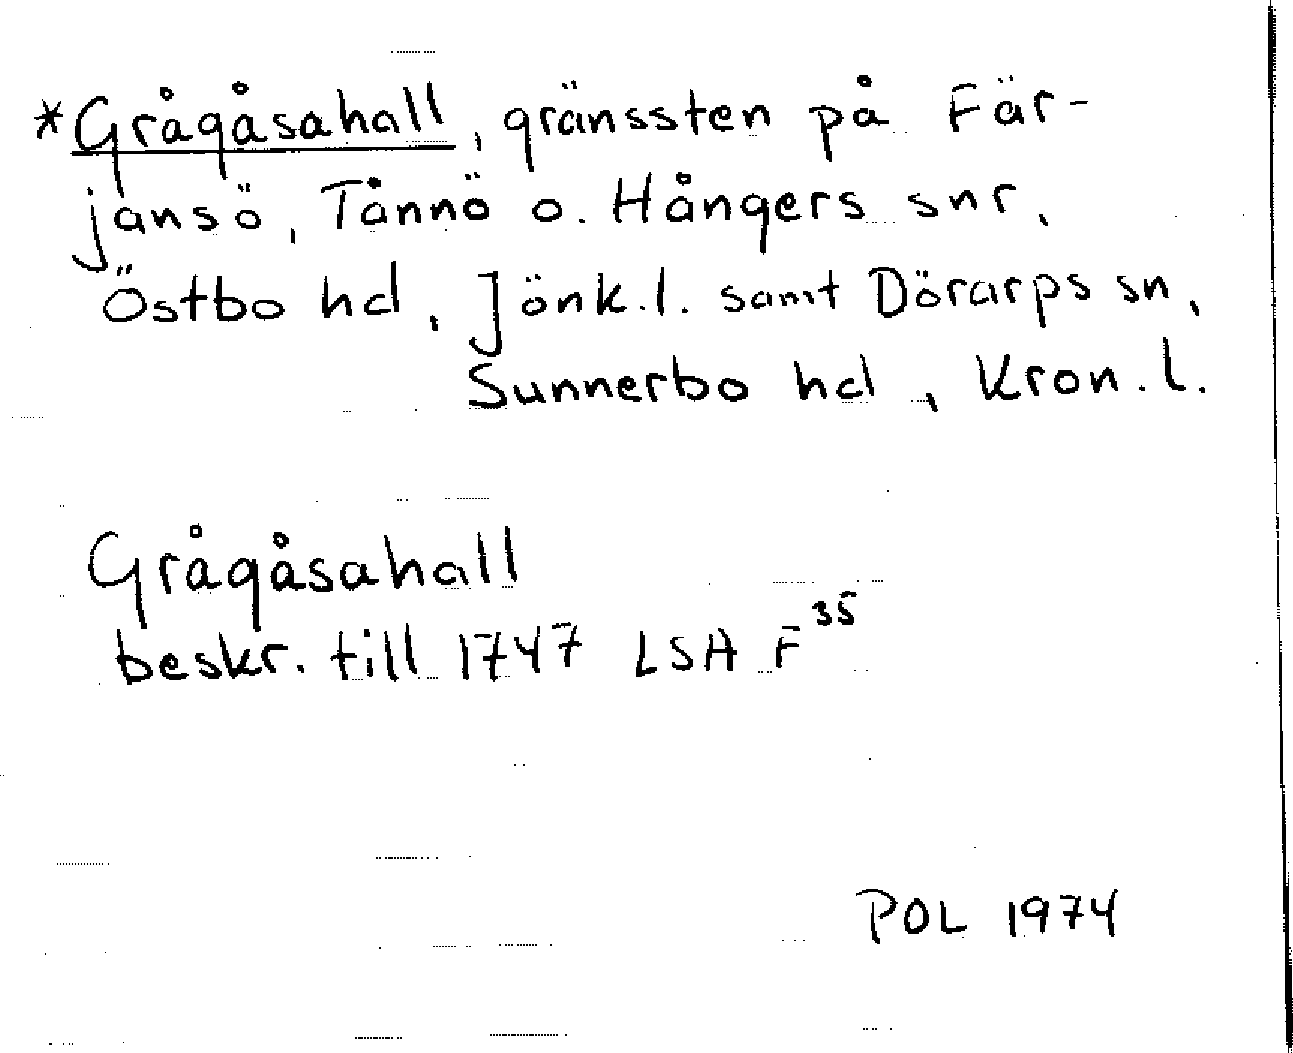 *Grågåsahall, gränssten på Fär-
jansö, Tånnö o. Hångers snr,
Östbo hd, Jönk.l. samt Dörarps sn,
Sunnerbo hd, Kron.l.
Grågåsahall
beskr. till 1747 LSA F³⁵
POL 1974